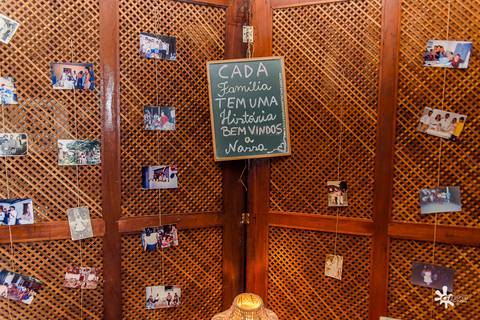 CADA
Família
TEM UMA
História
BEM VINDOS
a
Nossa